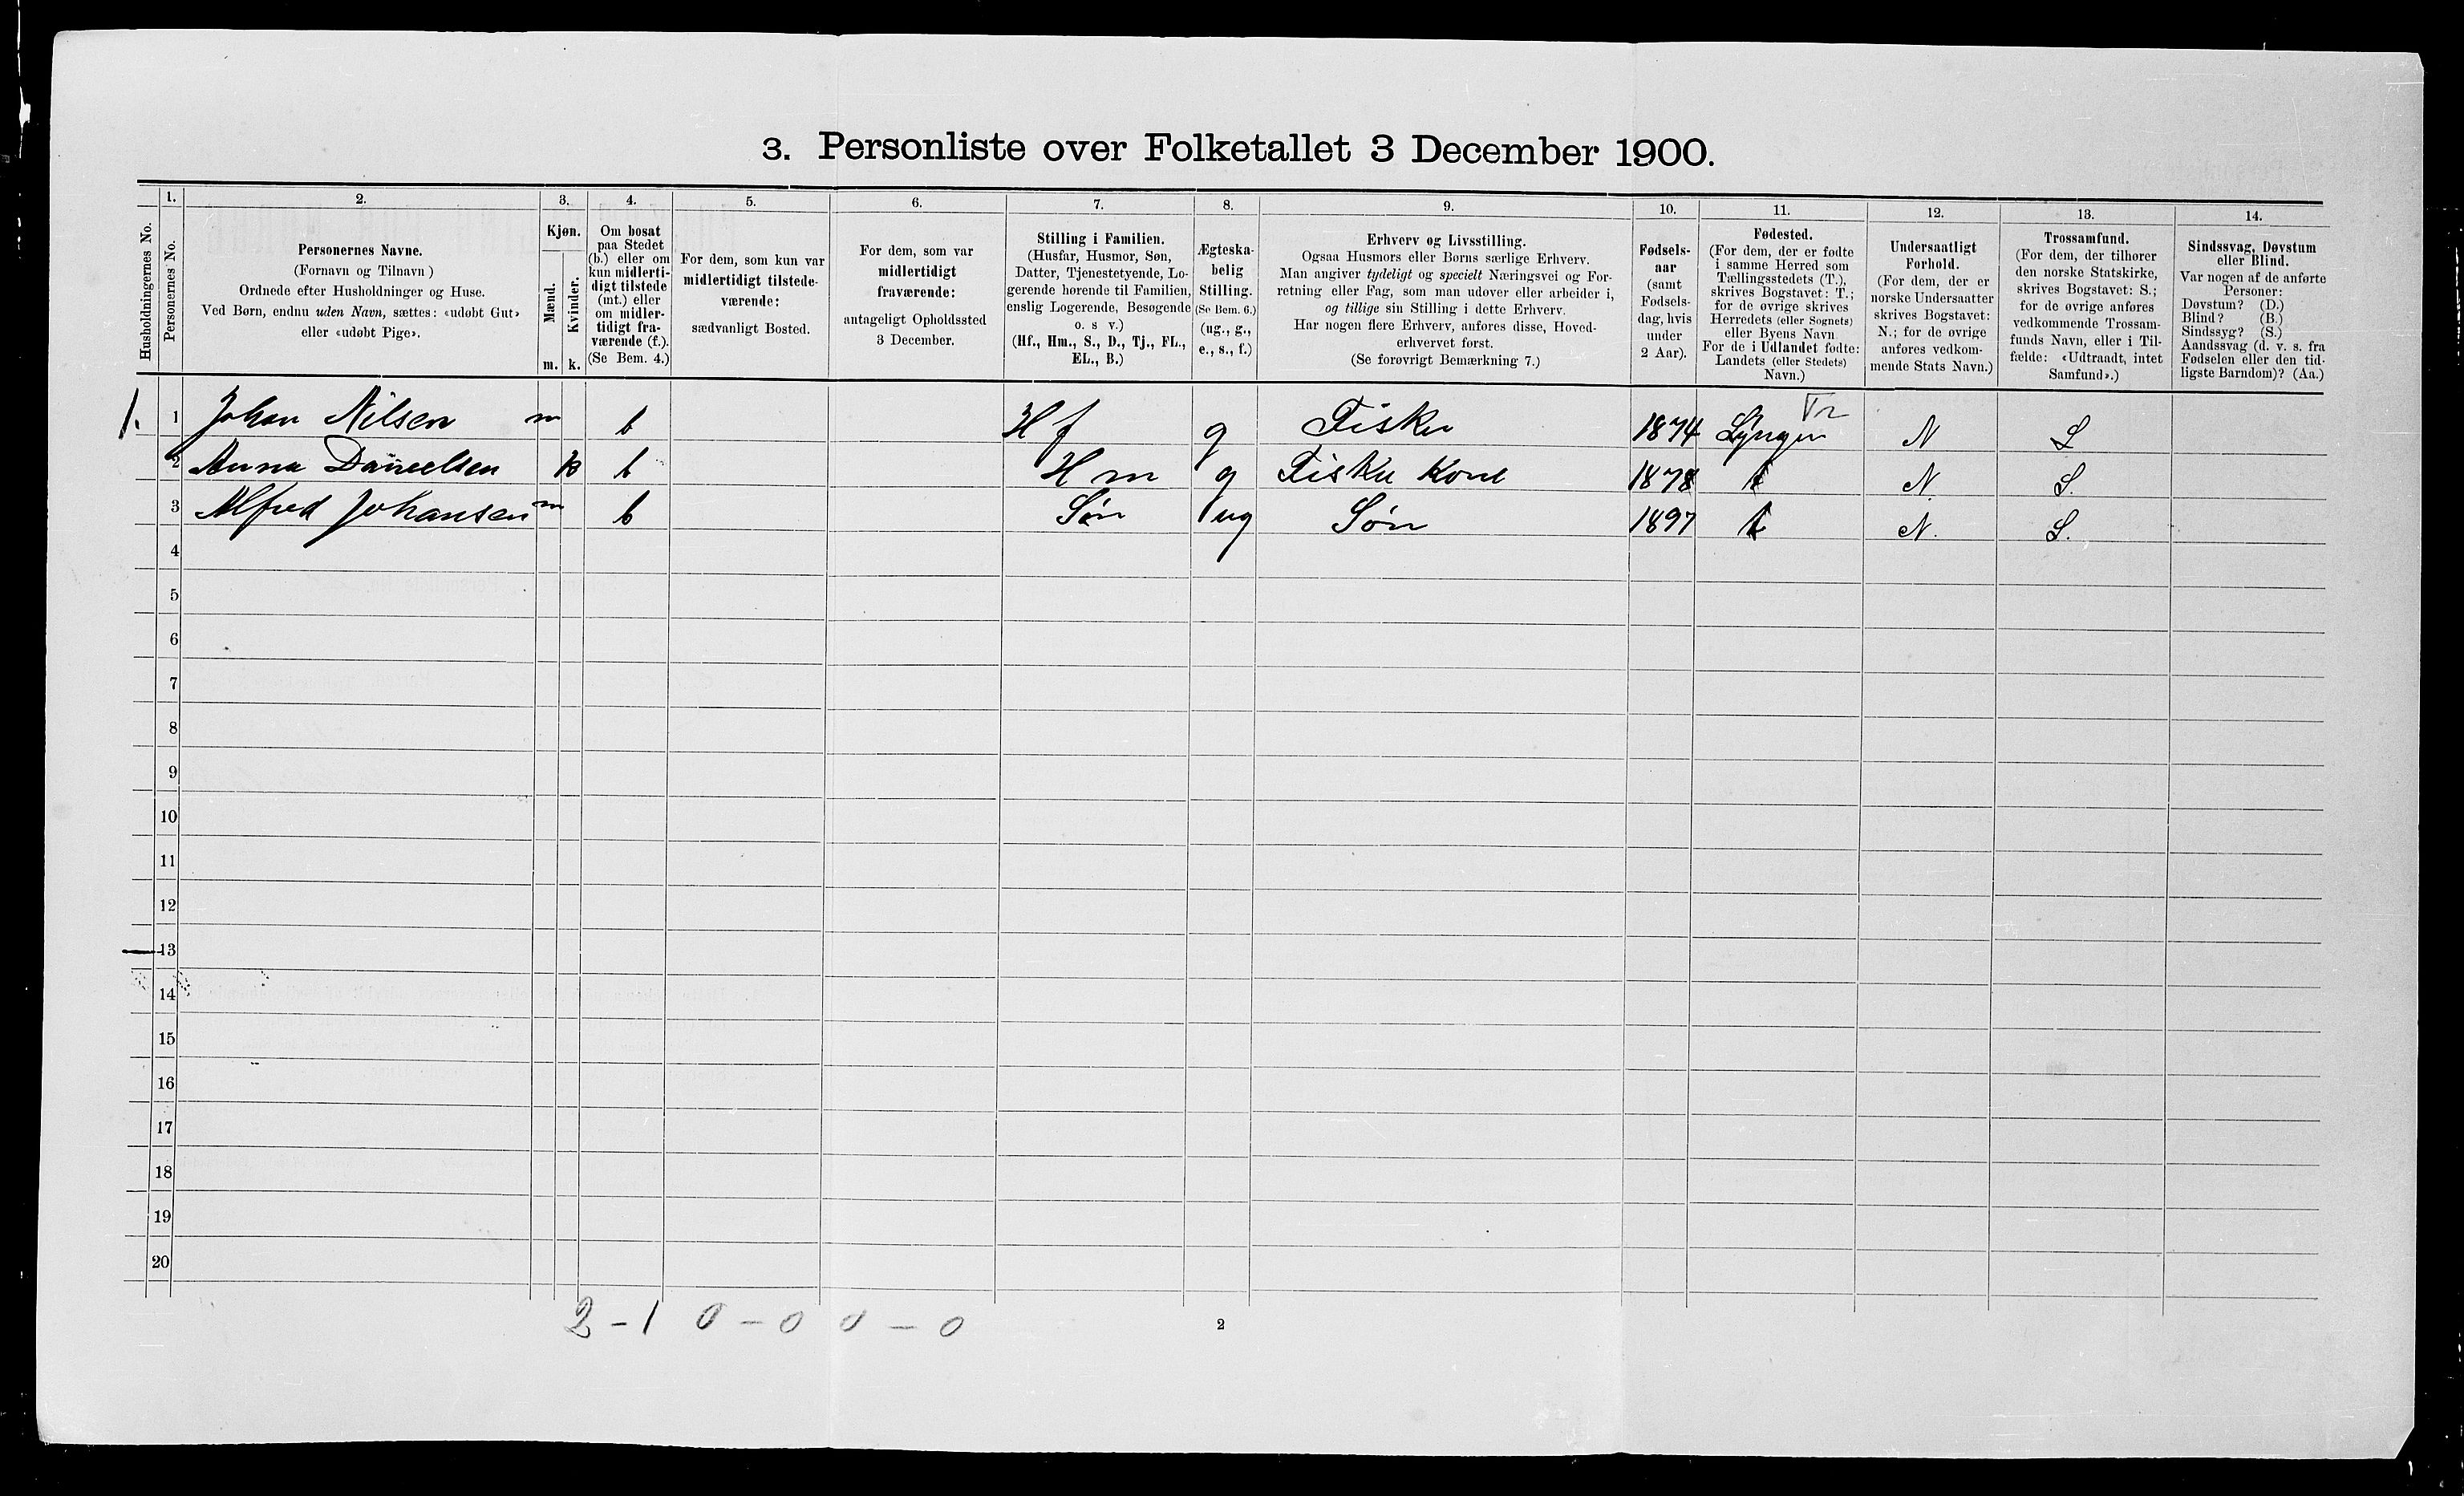 3. Personliste over Folketallet 3 December 1900.
Husholdningernes No.
1.
Personernes No.
2.
Personernes Navne.
(Fornavn og Tilnavn)
Ordnede efter Husholdninger og Huse.
Ved Børn, endnu uden Navn, sættes: «udøbt Gut»
eller «udøbt Pige».
3.
Kjøn.
Mænd.
Kvinder.
m. k.
4.
Om bosat
paa Stedet
(b.) eller om
kun midlerti-
digt tilstede
(mt.) eller
om midler-
tidigt fra-
værende (f.).
(Se Bem. 4.)
5.
For dem, som kun var
midlertidigt tilstede-
værende:
sædvanligt Bosted.
6.
For dem, som var
midlertidigt
fraværende:
antageligt Opholdssted
3 December.
7.
Stilling i Familien.
(Husfar, Husmor, Søn,
Datter, Tjenestetyende, Lo-
gerende hørende til Familien,
enslig Logerende, Besøgende
o. s v.)
(Hf., Hm., S., D., Tj., FL.,
EL., B.)
8.
Ægteska-
belig
Stilling.
(Se Bem. 6.)
(ug., g.,
e., s., f.)
9.
Erhverv og Livsstilling.
Ogsaa Husmors eller Børns særlige Erhverv.
Man angiver tydeligt og specielt Næringsvei og For-
retning eller Fag, som man udøver eller arbeider i,
og tillige sin Stilling i dette Erhverv.
Har nogen flere Erhverv, anføres disse, Hoved-
erhvervet først.
(Se forøvrigt Bemærkning 7.)
10.
Fødsels-
aar
(samt
Fødsels-
dag, hvis
under
2 Aar).
11.
Fødested.
(For dem, der er fødte
i samme Herred som
Tællingsstedets (T.),
skrives Bogstavet: T.;
for de øvrige skrives
Herredets (eller Sognets)
eller Byens Navn.
For de i Udlandet fødte:
Landets (eller Stedets)
Navn.)
12.
Undersaatligt
Forhold.
(For dem, der er
norske Undersaatter
skrives Bogstavet:
N.; for de øvrige
anføres vedkom-
mende Stats Navn.)
13.
Trossamfund.
(For dem, der tilhører
den norske Statskirke,
skrives Bogstavet: S.;
for de øvrige anføres
vedkommende Trossam-
funds Navn, eller i Til-
fælde: «Udtraadt, intet
Samfund».)
14.
Sindssvag, Døvstum
eller Blind.
Var nogen af de anførte
Personer:
Døvstum? (D.)
Blind? (B.)
Sindssyg? (S.)
Aandssvag (d. v. s. fra
Fødselen eller den tid-
ligste Barndom)? (Aa.)
1. 1 Johan Nilsen m b Hf g Fisker 1874 Lyngen Tr N S
2 Anna Danielsen k b Hm g Fisker Kone 1878 t N. S.
3 Alfred Johansen m b Søn ug Søn 1897 t N. S.
4
5
6
7
8
9
10
11
12
13
14
15
16
17
18
19
20
2 - 1 0 - 0 0 - 0
2